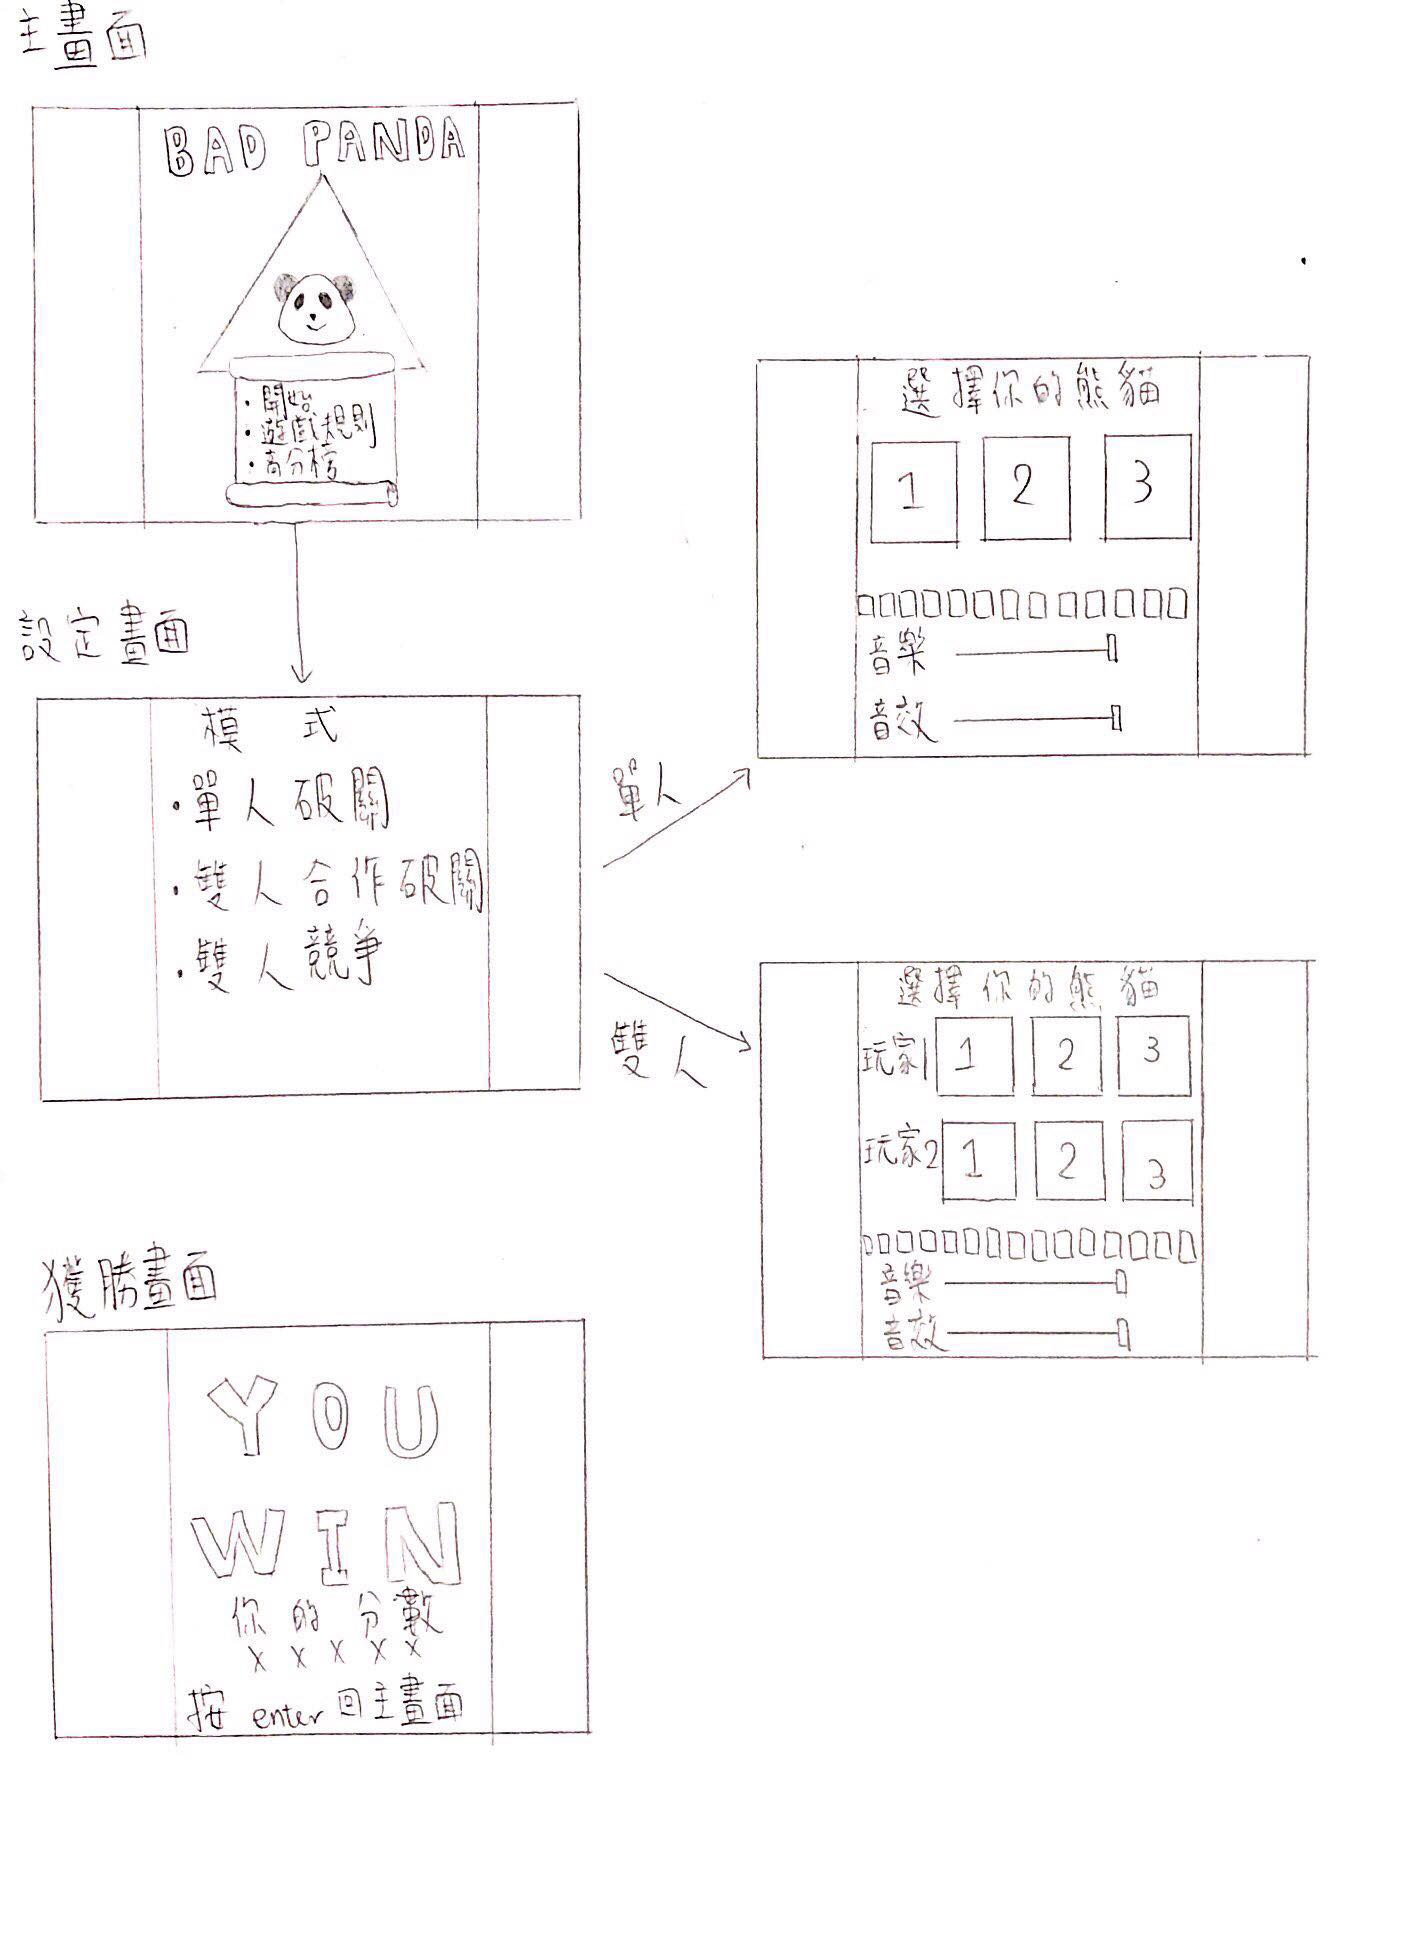 主畫面
BAD PANDA
・開始
・遊戲規則
・高分榜
設定畫面
模 式
・單人破關
・雙人合作破關
・雙人競爭
單人
選擇你的熊貓
1 2 3
音樂
音效
雙人
選擇你的熊貓
玩家1 1 2 3
玩家2 1 2 3
音樂
音效
獲勝畫面
YOU
WIN
你的分數
X X X X X
按 enter 回主畫面